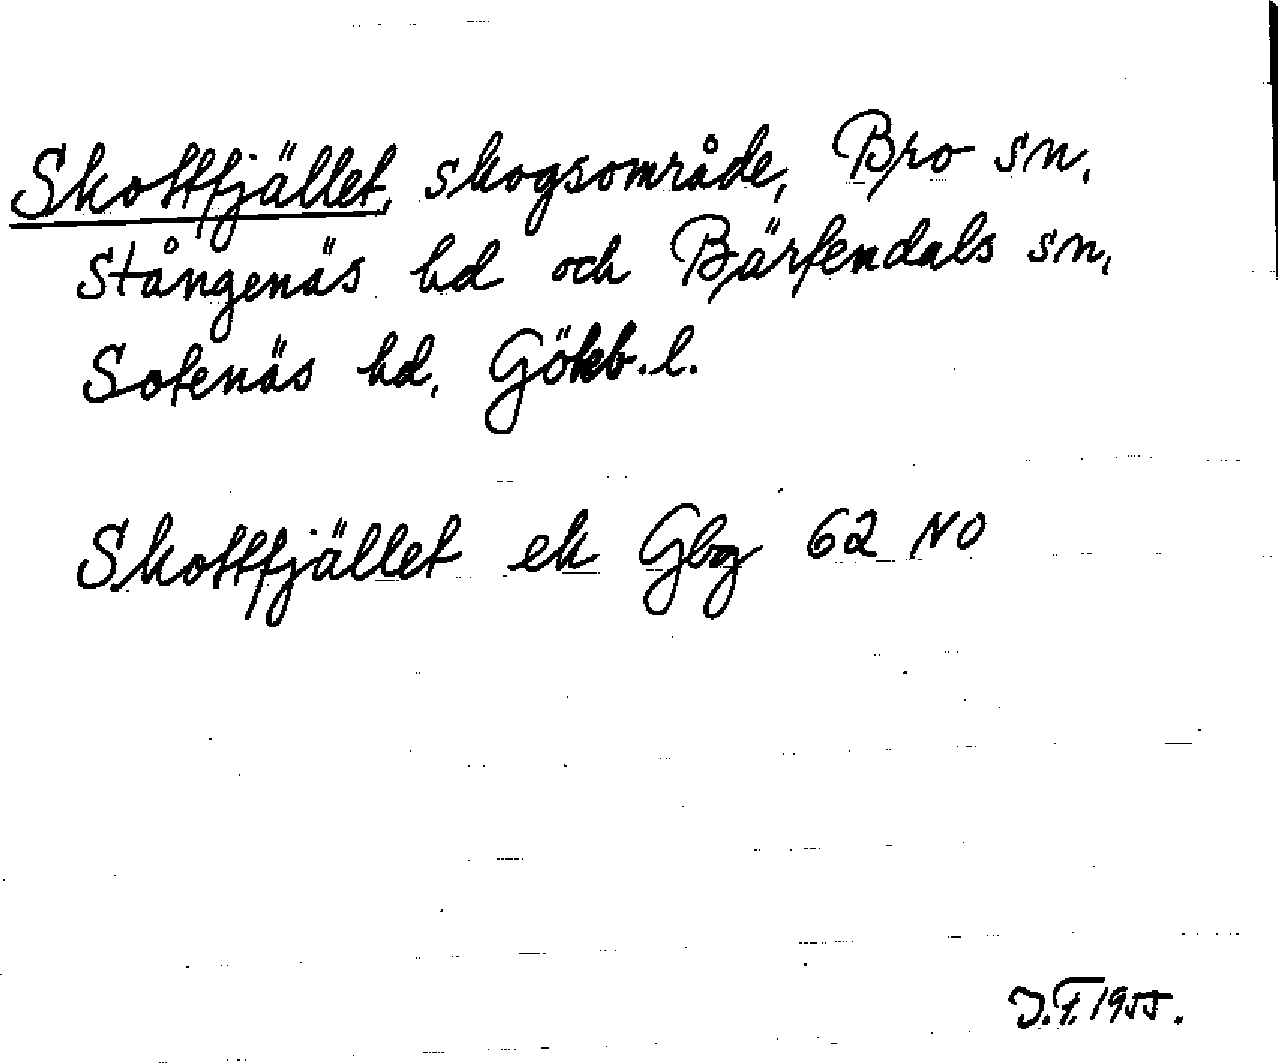 Skottfjället, skogsområde, Bro sn,
Stångenäs hd och Bärfendals sn,
Sotenäs hd, Göteb. l.
Skottfjället ek Gbg 62 NO
J.F. 1955.